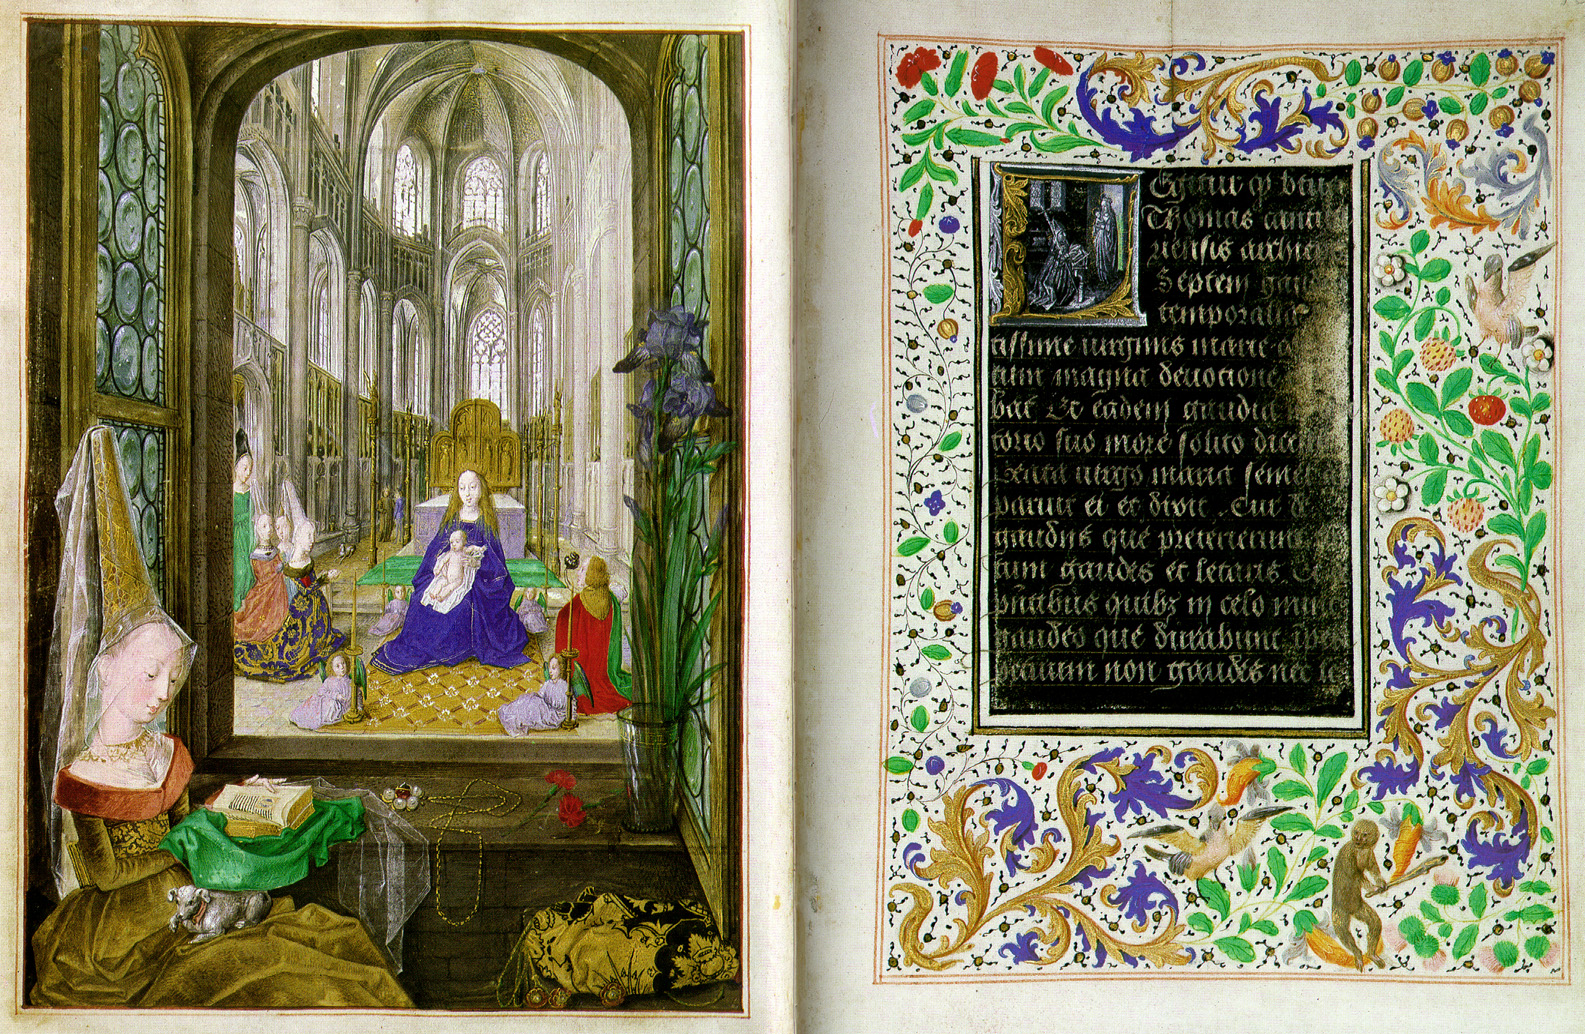 Egitur qꝫ beat
Thomas cantu
riensis archiep
Septem gau
temporalia
tissime virginis marie
tum magna deuocione
bat Et eadem gaudia
torio suo more solito dice
virgo maria seme
paruit ei et dixit . Cur d
gaudijs que preterierunt
tum gaudes et letaris.
pñtibus quibꝫ in celo nunc
gaudeo que durabunt
petuum non gaudes nec le